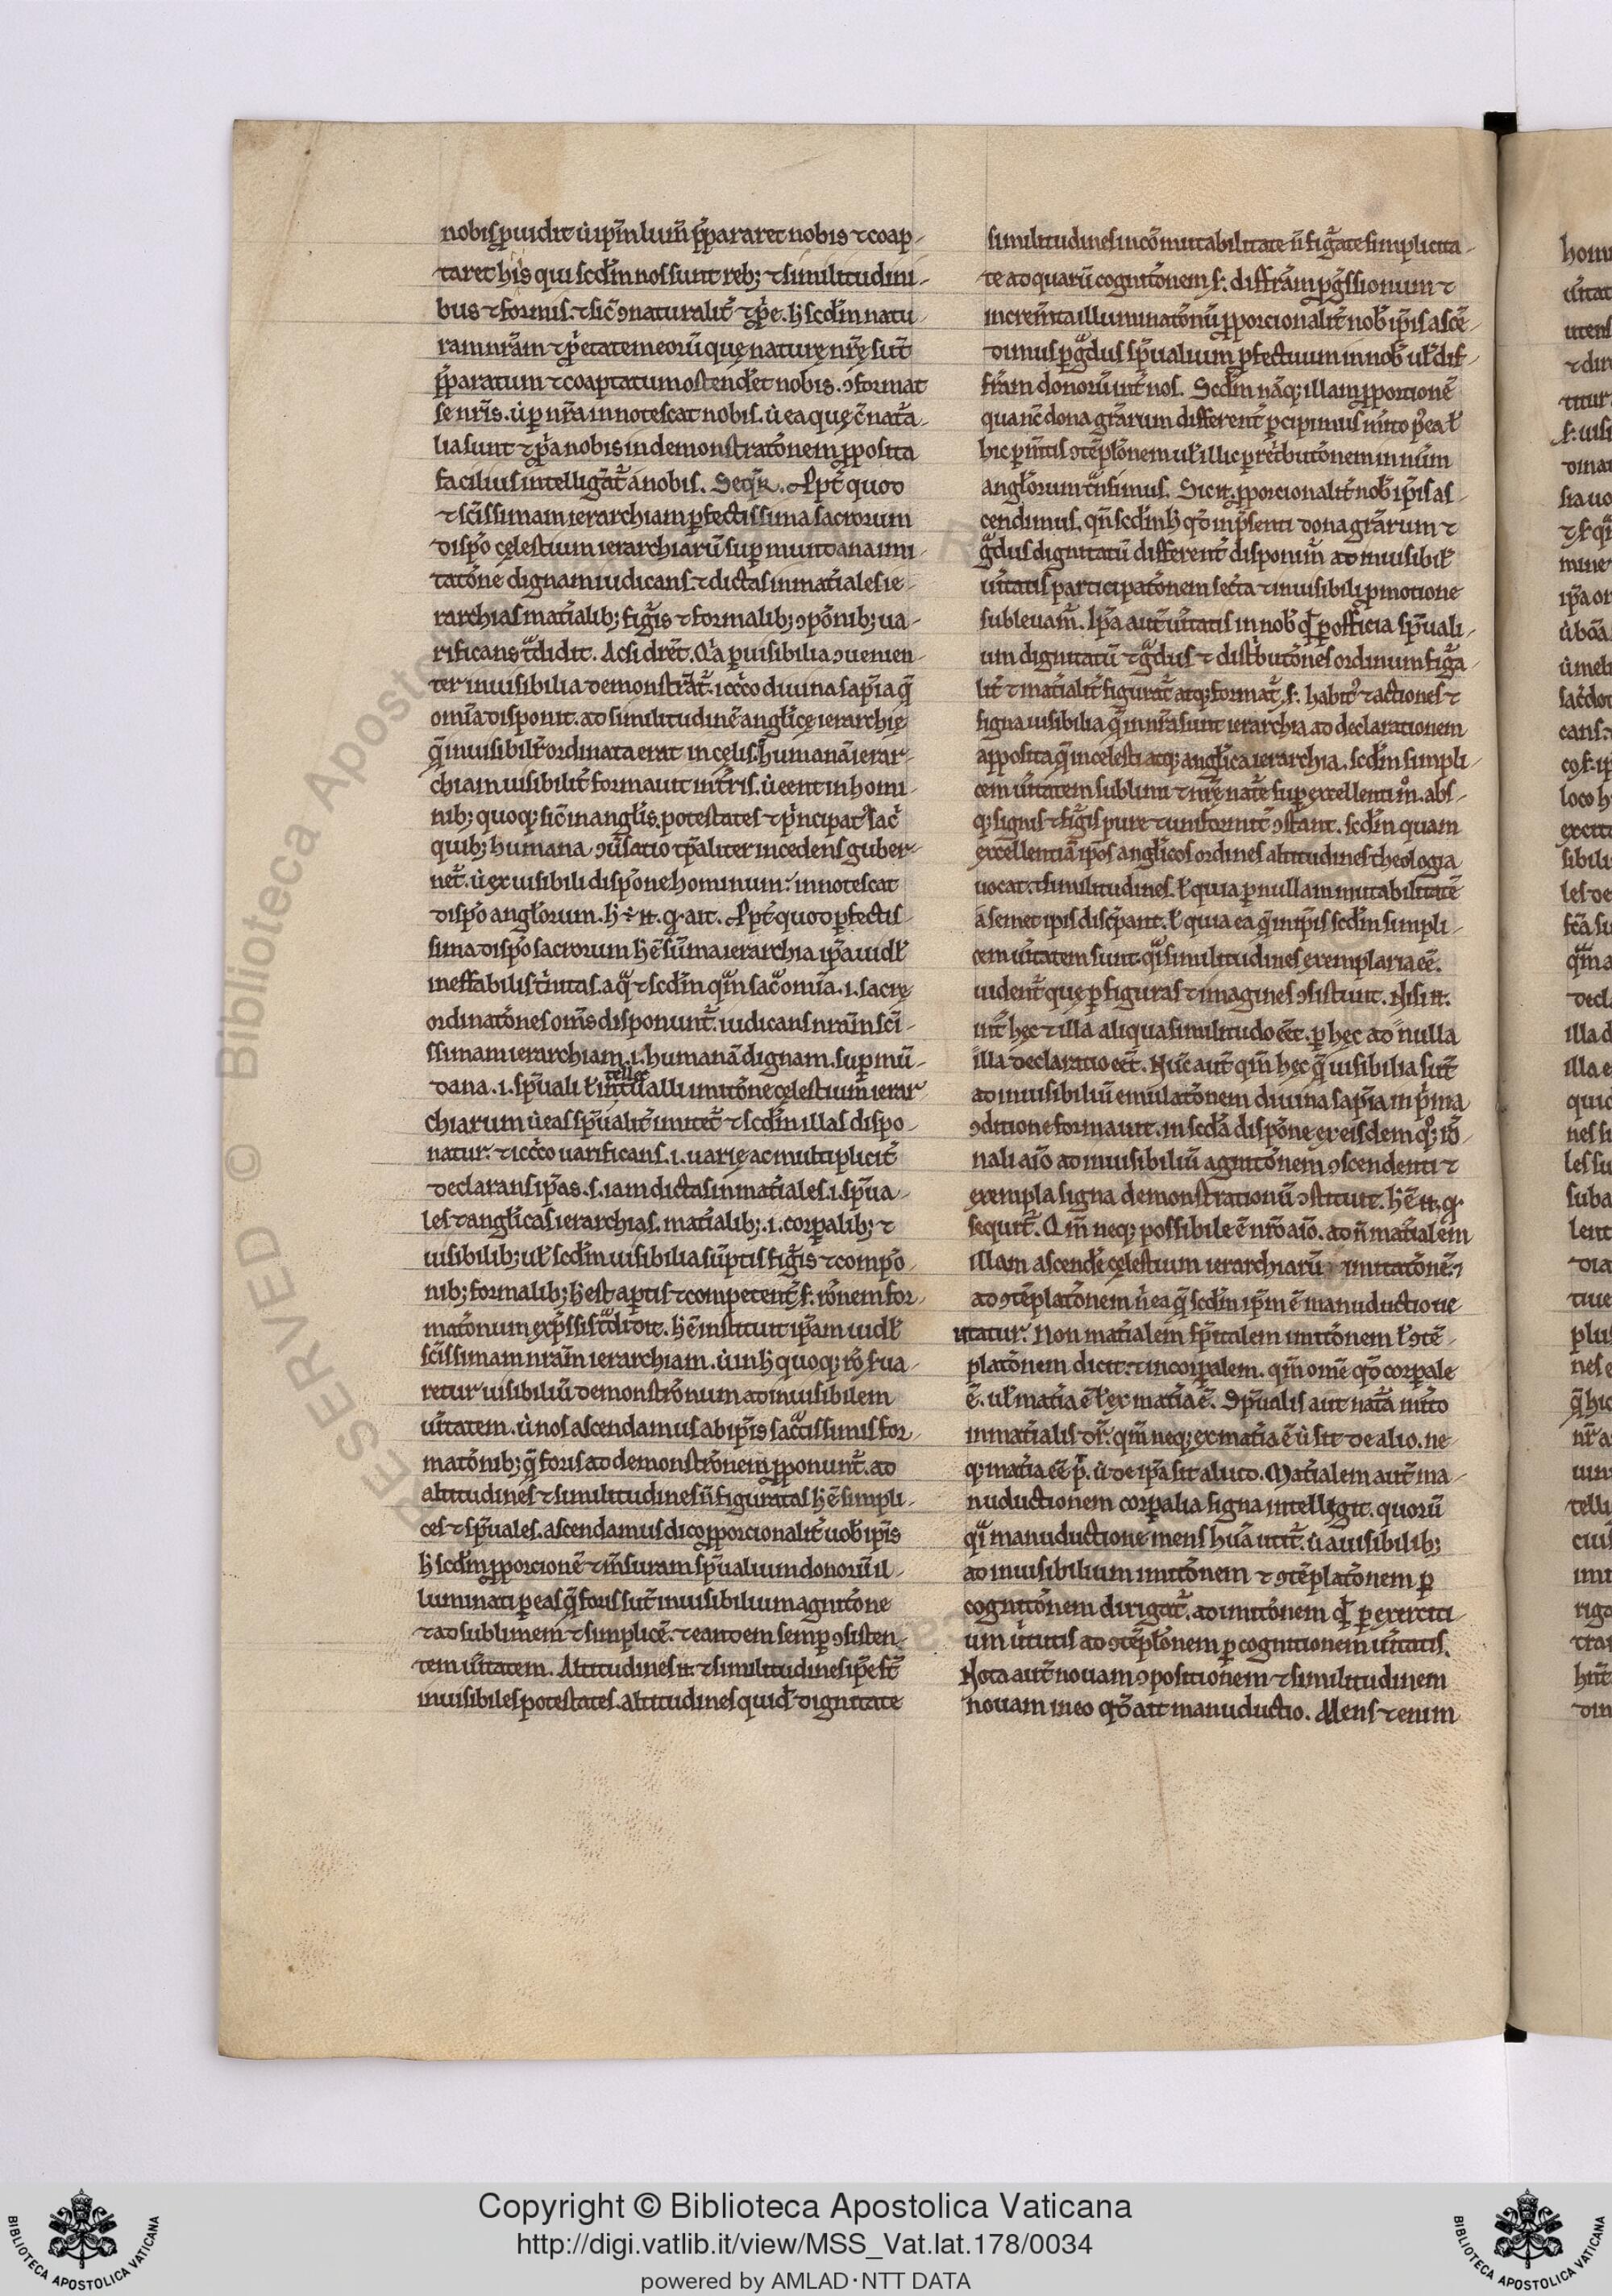 nobis ꝓuidit ut ip̃m lum̃ p̃pararet nobis ⁊ coap-
taret his qui scd̃m nos sunt reb; ⁊ similitudini-
bus ⁊ formis. ⁊ sic̃ ↄnaturalit̃ ⁊ ꝓp̃e. h̃ scd̃m natu-
ram nr̃am
p̃paratum ⁊ coaptatum ostend̃et nobis. ↄformat
se nr̃is.
lia sunt ⁊ nobis in demonstratõnem ꝓposita
facilius intelligat̃ a nobis. Seqr̃. Ppt̃ quod
⁊ sc̃issimam ierarchiam ꝑfectissima sacrorum
disp̃o cęlestium ierarchiarũ suꝑmundana imi-
tatõne dignam iudicans. ⁊ dictas inmat̃iales ie-
rarchias mat̃ialib; fig̃is ⁊ formalib; ↄpõnib; ua-
rificans t̃didit. Ac si dr̃et. Q̃a ꝑ uisibilia ↄuenien-
ter inuisibilia demonstrãt̃. icc̃co diuina sap̃ia q̃
om̃ia disponit. ad similitudinẽ angl̃icę ierarchię
q̃ inuisibilit̃ ordinata erat in celis. humanã ierar-
chiam uisibilit̃ formauit in t̃ris. ut eent in homi-
nib; quoq; sic̃ in angl̃is. potestates ⁊ p̃ncipat; sac̃
quib; humana ↄũsatio tp̃aliter incedens guber-
net̃. ut ex uisibili disp̃one hominum: innotescat
disp̃o angl̃orum. h̃ ÷ .n. q̃ ait. Ppt̃ quod ꝑfectis-
sima disp̃o sacrorum h̃ ẽ sũma ierarchia ip̃a uidl̃
ineffabilis t̃nitas. a q̃ ⁊ scd̃m quã sac̃ om̃ia. i. sacrę
ordinatõnes om̃s disponunt̃. iudicans nr̃am sc̃i-
ssimam ierarchiam. i. humanã dignam. suꝑmũ-
dana. i. sp̃uali l̃ intellectuali imitõne cęlestium ierar
chiarum ut eas sp̃ualit̃ imitet̃ ⁊ scd̃m illas dispo-
natur. ⁊ icc̃co uarificans. i. uarię ac multiplicit̃
declarans ip̃as. s. iam dictas inmat̃iales. i. sp̃ua-
les ⁊ angl̃icas ierarchias. mat̃ialib;. i. corꝑalib; ⁊
uisibilib; ul̃ scd̃m uisibilia sũptis fig̃is ⁊ compõ-
nib; formalib; h̃ est aptis ⁊ competent̃ s. rõnem for-
matõnum exp̃ssis t̃didit. h̃ ẽ instituit ip̃am uidl̃
sc̃issimam nr̃am ierarchiam. ut in h̃ quoq;
retur uisibiliũ demonstrõnum ad inuisibilem
uĩtatem. ut nos ascendamus ab ip̃is sac̃tissimis for-
matõnib; q̃ foris ad demonstrõnem ꝓponunt̃. ad
altitudines ⁊ similitudines ñ figuratas h̃ ẽ simpli-
ces ⁊ sp̃uales. ascendamus dico ꝓporcionalit̃ uob̃ ip̃is
h̃ scd̃m ꝓporcionẽ ⁊ m̃suram sp̃ualium donorũ il-
luminati ꝑ eas q̃ foris sũt inuisibilium agnitõne
⁊ ad sublimem ⁊ simplicẽ. ⁊ eandem semꝑ ↄsisten-
tem uĩtatem. Altitudines .n. ⁊ similitudines ip̃e sũt
inuisibiles potestates. altitudines quid̃ dignitate
similitudines incõmutabilitate ñ fig̃ate simplicita-
te ad quarũ cognitõnem s. diffr̃am ꝓg̃ssionum ⁊
increm̃ta illuminatõnũ ꝓporcionalit̃ nob̃ ip̃is ascẽ-
dimus ꝑ g̃dus sp̃ualium ꝓfectuum in nob̃ ul̃ dif-
fr̃am donorũ int̃ nos. Scd̃m nãq; illam ꝓporcionẽ
qua nc̃ dona gr̃arum different̃ ꝑcipimus
angl̃orum t̃nsimus. Sic .n. ꝓporcionalit̃ nob̃ ip̃is as-
cendimus. qñ scd̃m h̃ qd̃ in p̃senti dona gr̃arum ⁊
g̃dus dignitatũ different̃ disponim̃ ad inuisibil̃
uĩtatis participatõnem secr̃ta ⁊ inuisibili ꝓmotione
subleuam̃. Ip̃a aut̃ uĩtatis in nob̃ qd̃ ꝑ officia sp̃uali-
um dignitatũ ⁊ g̃dus ⁊ dist̃butõnes ordinum fig̃a-
lit̃ ⁊ mat̃ialit̃ figurat̃ atq; format̃. s. habit; ⁊ actiones ⁊
signa uisibilia q̃ in nr̃a sunt ierarchia ad declarationem
apposita q̃ in celesti atq; angl̃ica ierarchia. scd̃m simpli-
cem uĩtatem sublimi ⁊ nr̃ę nat̃e suꝑexcellenti m̃o. abs-
q; signis ⁊ fig̃is pure ⁊ uniformit̃ ↄstant. scd̃m quam
excellentiã ip̃os angl̃icos ordines altitudines theologia
uocat. ⁊ similitudines. l̃ quia ꝑ nullam mutabilitatẽ
a semet ipis discp̃ant. l̃ quia ea q̃ in ip̃is scd̃m simpli-
cem uĩtatem sunt. q̃si similitudines exemplaria eẽ.
uident̃ que ꝑ figuras ⁊ imagines ↄsistunt. Nisi .n.
int̃ hęc ⁊ illa aliqua similitudo eẽt. ꝑ hęc ad nulla
illa declaratio eẽt. Nũc aut̃ qm̃ hęc q̃ uisibilia sũt
ad inuisibiliũ emulatõnem diuina sap̃ia in p̃ma
ↄditione formauit. in scd̃a disp̃one ex eisdem quoq; rõ-
nali aĩo ad inuisibiliũ agnitõnem ↄscendenti ⁊
exempla signa demonstrationũ ↄstituit. h̃ ẽ .n. q̃
sequit̃. Qm̃ neq; possibile ẽ nr̃o aĩo. ad ñ mat̃ialem
illam ascend̃e cęlestium ierarchiarũ imitatõnẽ ⁊
ad ↄtẽplatõnem n̂ ea q̃ scd̃m ip̃m ẽ manuductione
utatur. Non mat̃ialem sp̃italem imitõnem l̃ ↄtẽ-
platõnem dicit. ⁊ incorꝑalem. qm̃ omẽ qd̃ corꝑale
ẽ. ul̃ mat̃ia ẽ l̃ ex mat̃ia ẽ. Sp̃ualis aut̃ nat̃a m̃ito
inmat̃ialis dr̃. qm̃ neq; ex mat̃ia ẽ ut sit de alio. ne-
q; mat̃ia eẽ p̃t. ut de ip̃a sit aliud. Mat̃ialem aut̃ ma-
nuductionem corꝑalia signa intelligit. quorũ
q̃si manuductione mens huã utit̃. ut a uisibilib;
ad inuisibilium imitõnem ⁊ ↄtẽplatõnem ꝑ
cognitõnem dirigat̃. ad imitõnem qd̃ ꝑ exerciti-
um ũtutis ad ↄtẽpl̃onem ꝑ cognitionem uĩtatis.
Nota aut̃ nouam ↄpositionem ⁊ similitudinem
nouam in eo qd̃ ait manuductio. Mens etenim
Copyright © Biblioteca Apostolica Vaticana
http://digi.vatlib.it/view/MSS_Vat.lat.178/0034
powered by AMLAD·NTT DATA